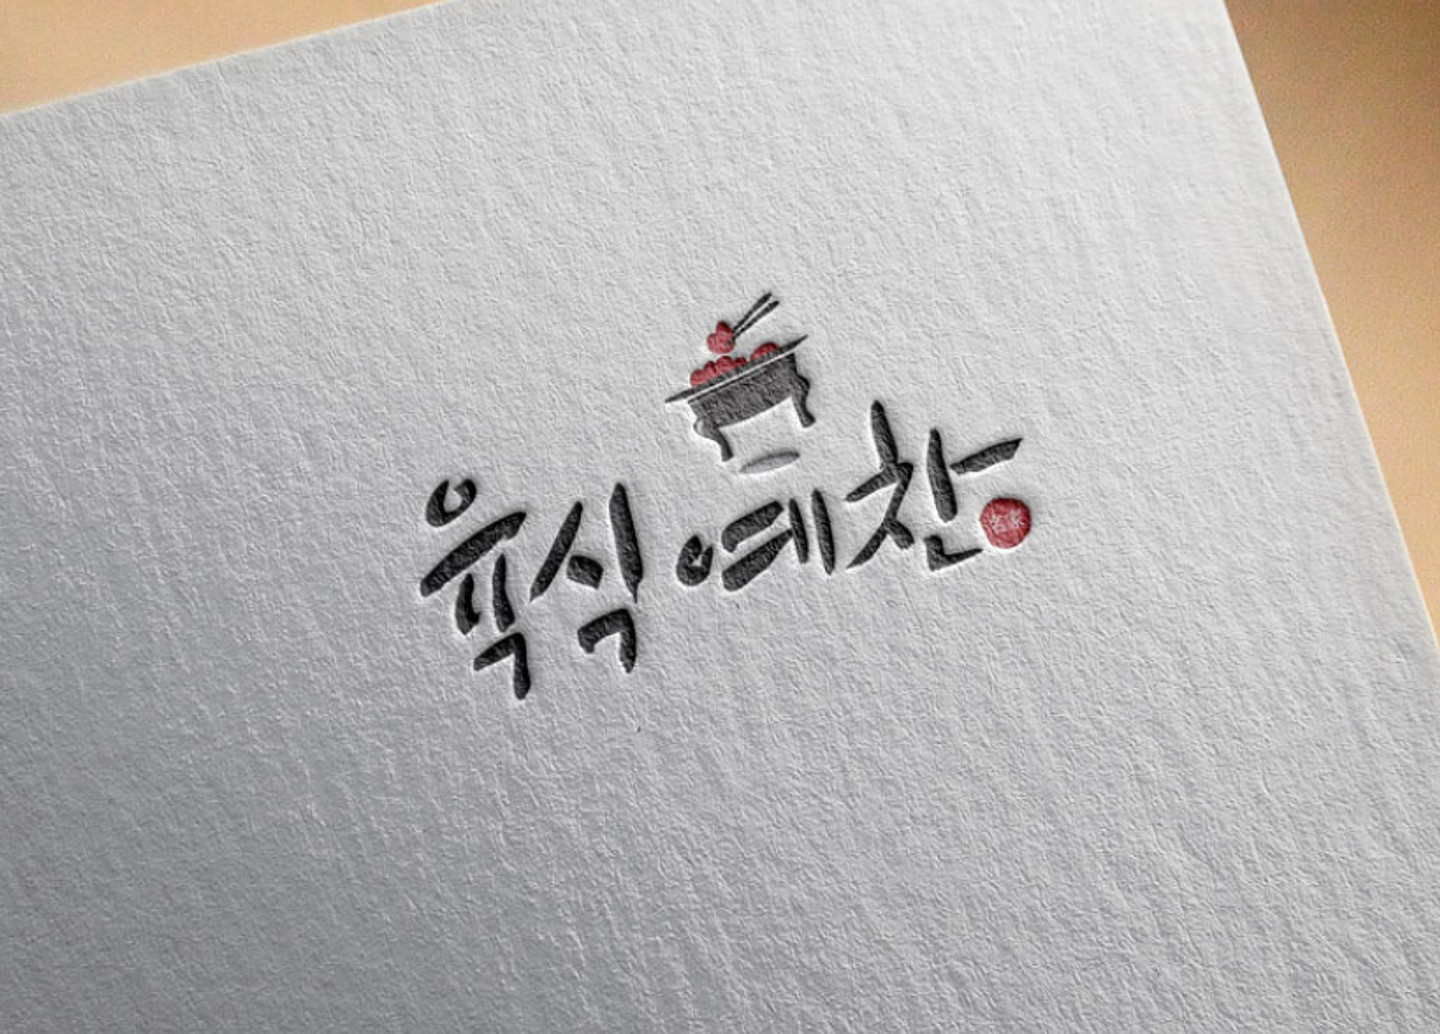 육식 예찬
名家